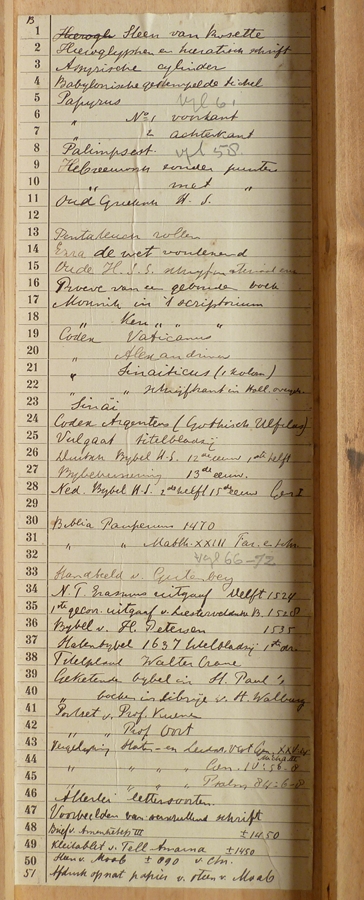 B
1 Hierogl Steen van Rosette
2 Hieroglyphen en hieratisch schrift
3 Assyrische cylinder
4 Babylonische gestempelde tichel
5 Papyrus vgl 6.
6 " No 1 voorkant
7 " 2 achterkant
8 Palimpsest. vgl 58
9 Hebreeuwsch zonder punten
10 " met "
11 Oud Grieksch H.S.
12
13 Pentateuch rollen
14 Ezra de wet voorlezend
15 Oude H.S.S.
16 Proeve van een gebonden boek
17 Monnik in 't scriptorium
18 " " " "
19 Codex Vaticanus
20 " Alexandrinus
21 " Sinaiticus (
22 " in Holl.
23 Sinaï
24 Codex Argenteus (Gothische Ulfilas)
25 Vulgaat titelbladzij
26 Bybel H.S. 12de eeuw 1ste helft
27 13de eeuw.
28 Ned. Bybel H.S. 2de helft 15de eeuw
29
30 Biblia Pauperum 1470
31 " " Matth. XXIII
32 vgl 66-72
33 Handbeeld v. Gutenberg
34 N.T. Erasmus uitgaaf Delft 1524
35 1ste uitgaaf v. Liesveldtsche B.
36 Bybel v. H. Petersen 1535
37 Statenbybel 1637 titelbladzij 1ste
38 Titelplaat Walter Crane
39 Geketende bybel in St. Paul's
40 " boeken in librije v. St. Walburg
41 Portret v. Prof. Kuenen
42 " " Prof Oort
43 Vergelijking Staten- en
44 " " " Gen. IV:
45 " " " Psalm 84:6-8
46 Allerlei lettersoorten.
47 Voorbeelden van schrift
48 Brief v. Amenhotep III ± 1450
49 Kleitablet v. Tell-Amarna ± 1450
50 Steen v. Moab ± 890 v. Chr.
51 Afdruk op nat papier v. steen v. Moab